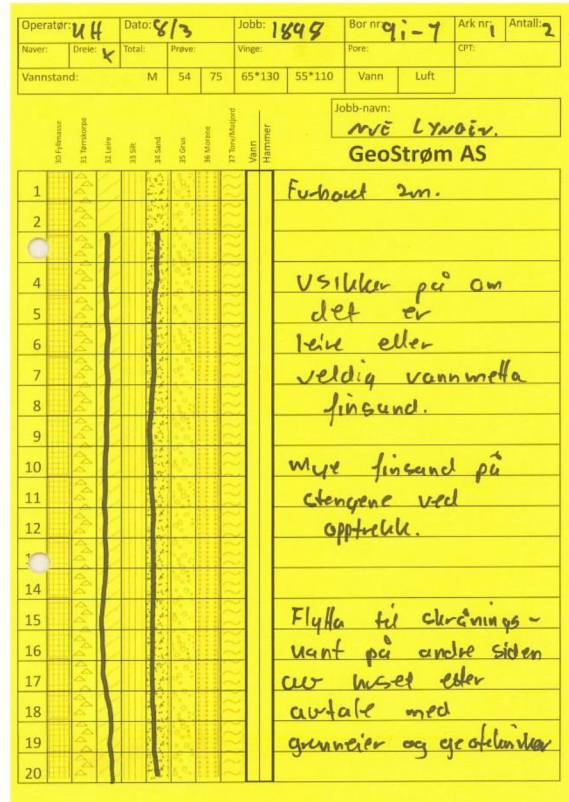 Operatør: UH Dato: 8/3 Jobb: 1898 Bor nr: 9i-7 Ark nr: 1 Antall: 2
Naver: Dreie: x Total: Prøve: Vinge: Pore: CPT:
Vannstand: M 54 75 65*130 55*110 Vann Luft
Jobb-navn:
NVE
GeoStrøm AS
30 Fyllmasse
31 Tørrskorpe
32 Leire
33 Silt
34 Sand
35 Grus
36 Morene
37 Torv/Matjord
Vann
Hammer
1 Forboret 2m.
2
4 Usikker på om
5 det er
6 leire eller
7 veldig vannmetta
8 finsand.
9
10 Mye finsand på
11 stengene ved
12 opptrekk.
14
15 Flytta til skrånings-
16 kant på andre siden
17 av huset etter
18 avtale med
19 grunneier og geotekniker
20